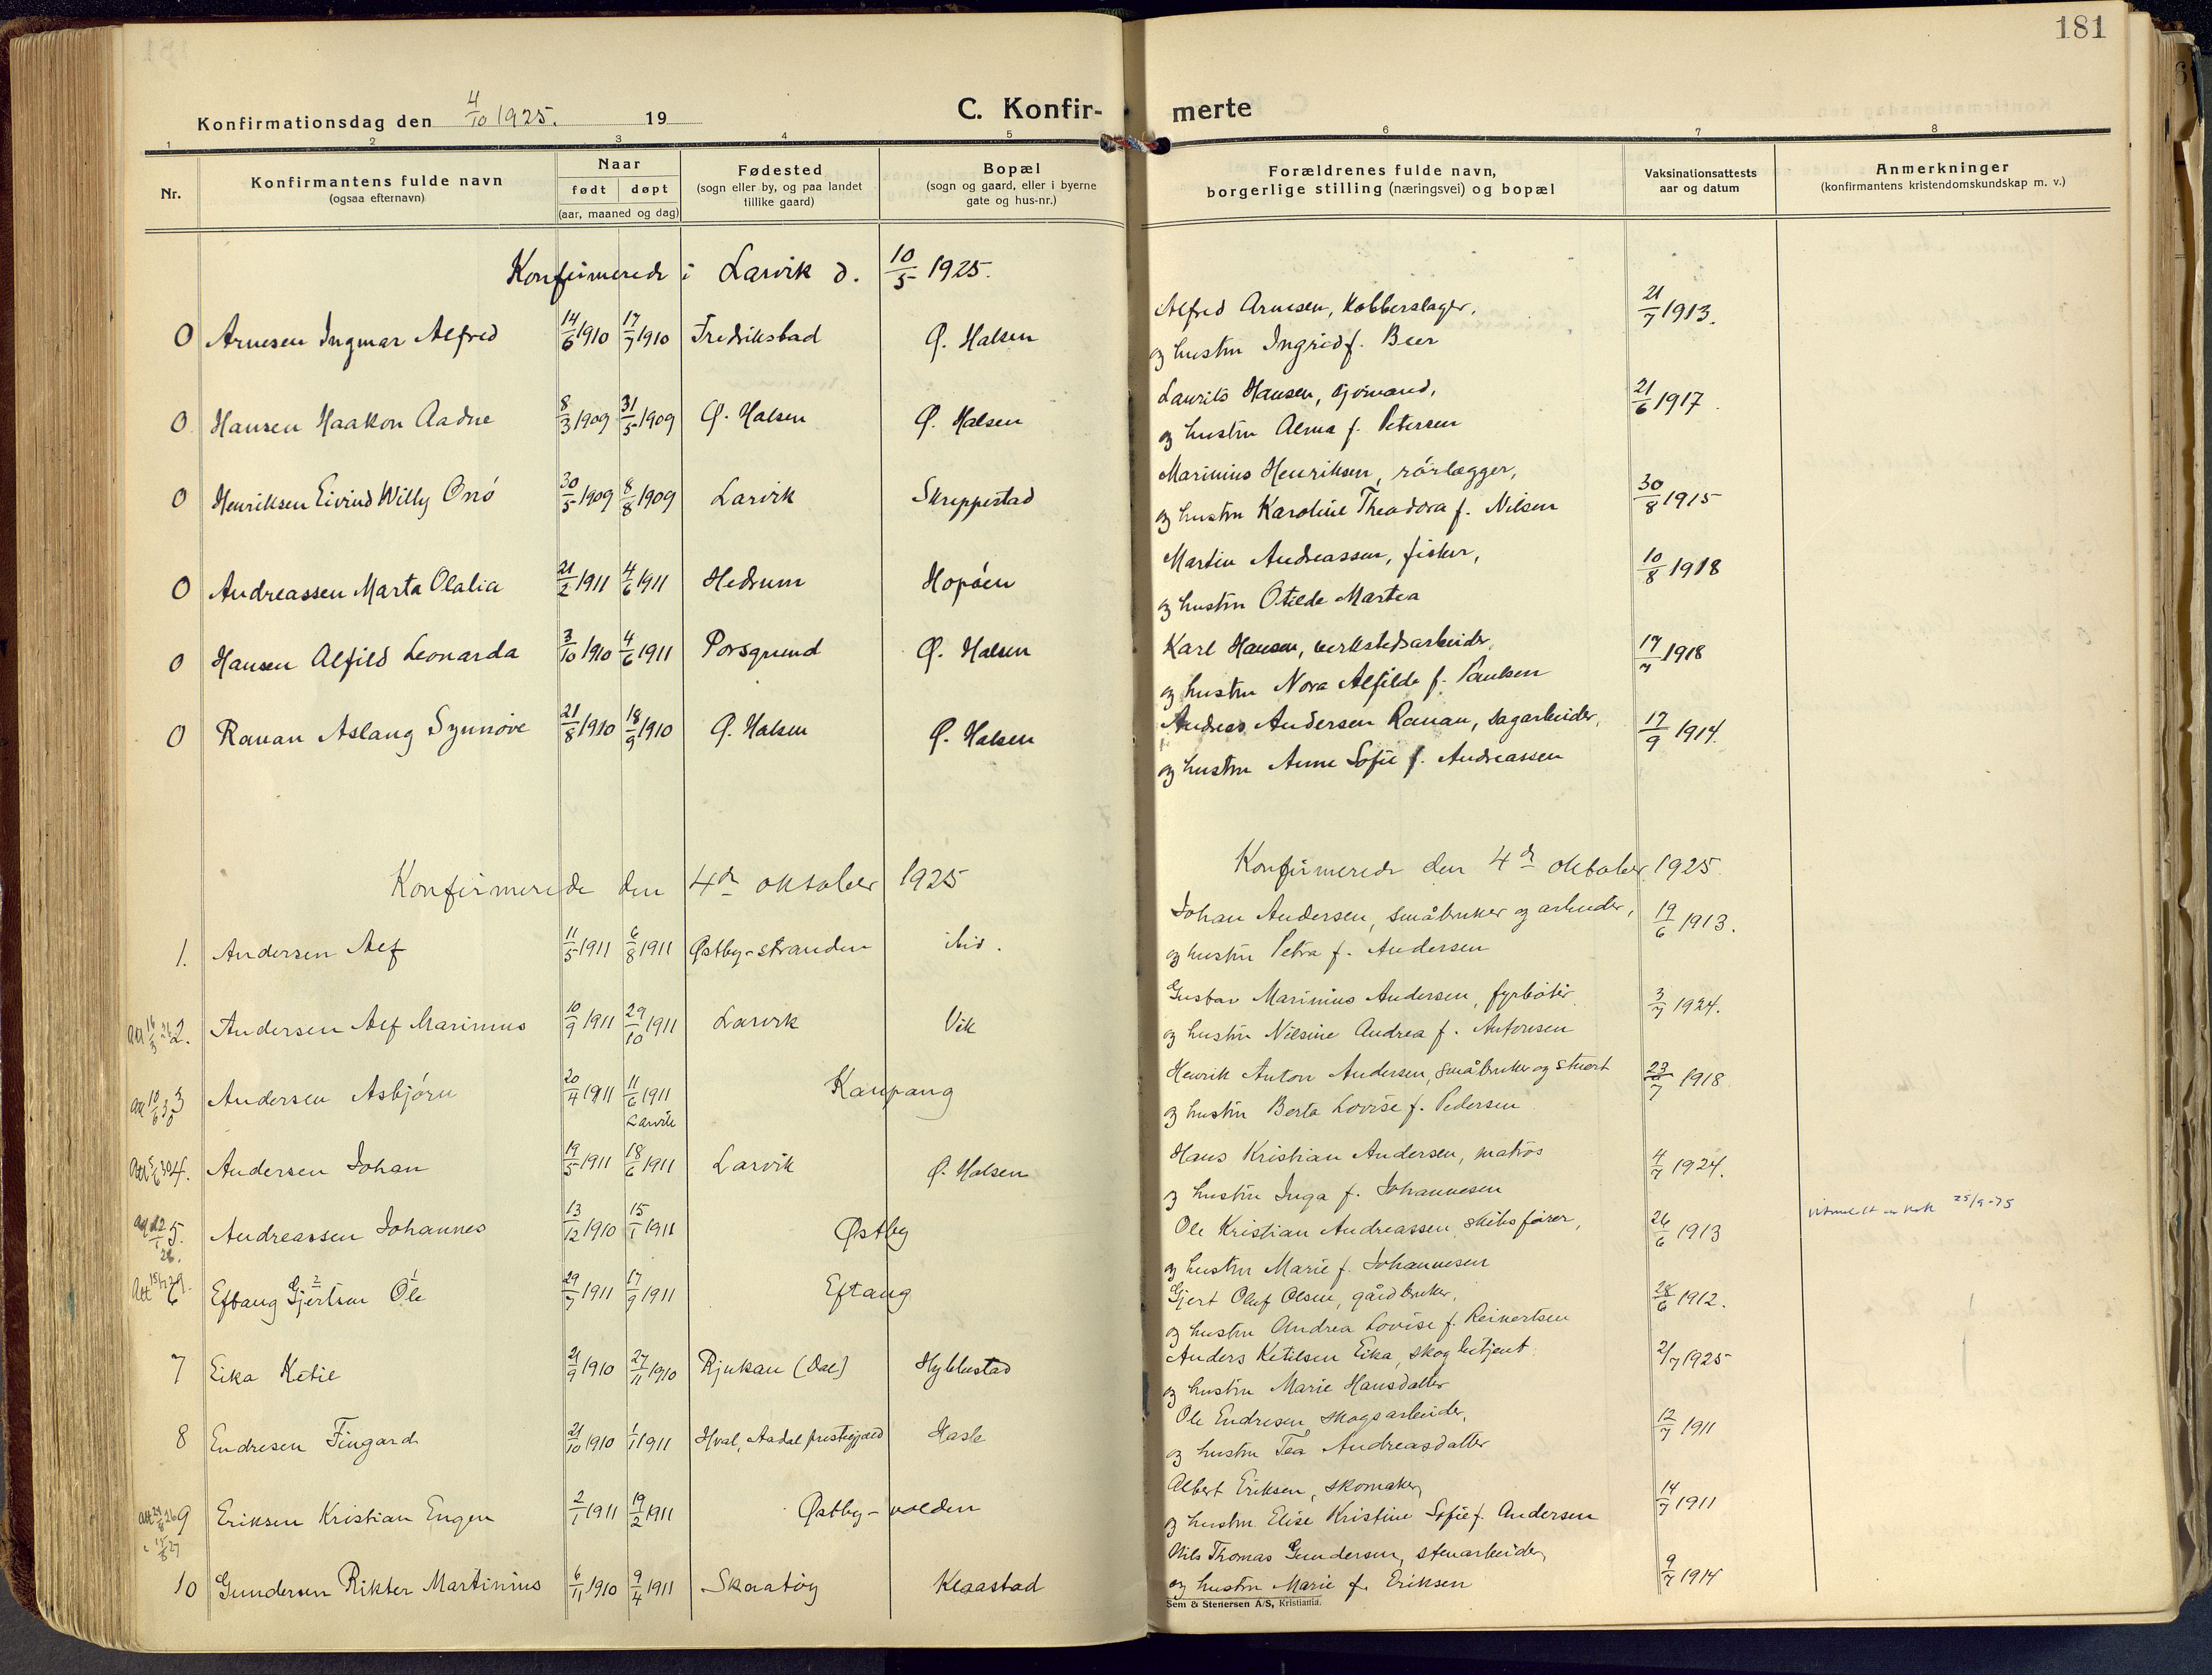 181
Konfirmationsdag den 4/10 1925. 19
C. Konfir-merte
1 2 3 4 5 6 7 8
Nr.
Konfirmantens fulde navn
(ogsaa efternavn)
Naar
født døpt
(aar, maaned og dag)
Fødested
(sogn eller by, og paa landet
tillike gaard)
Bopæl
(sogn og gaard, eller i byerne
gate og hus-nr.)
Forældrenes fulde navn,
borgerlige stilling (næringsvei) og bopæl
Vaksinationsattests
aar og datum
Anmerkninger
(konfirmantens kristendomskundskap m. v.)
Konfirmerede i Larvik d. 10/5 1925.
0 Arnesen Ingmar Alfred 14/6 1910 17/7 1910 Fredrikstad Ø. Halsen
Alfred Arnesen, Kobberslager, 21/7 1913.
og hustru Ingrid f. Beer
0 Hansen Haakon Aadne 8/3 1909 31/5 1909 Ø. Halsen Ø. Halsen
Laurits Hansen, sjømand, 21/6 1917.
og hustru Alma f. Petersen
0 Henriksen Eivind Willy Orrö 30/5 1909 8/8 1909 Larvik Skreppestad
Marinius Henriksen, rörlægger, 30/8 1915
og hustru Karoline Theodora f. Nilsen
0 Andreassen Marta Olalia 21/2 1911 4/6 1911 Hedrum Hopöen
Martin Andreassen, fisker, 10/8 1918
og hustru Otilde Martea
0 Hansen Alfild Leonarda 3/10 1910 4/6 1911 Porsgrund Ø. Halsen
Karl Hansen, verkstedsarbeider, 17/7 1918
og hustru Nora Alfilde f. Paulsen
0 Rauan Aslaug Synnöve 21/8 1910 18/9 1910 Ø. Halsen Ø. Halsen
Andreas Andersen Rauan, sagarbeider, 17/9 1914.
og hustru Anne Sofie f. Andreassen
Konfirmerede den 4de oktober 1925
Konfirmerede den 4de oktober 1925.
1. Andersen Alf 11/5 1911 6/8 1911 Østby-stranden ibid.
Johan Andersen, småbruker og arbeider, 19/6 1913.
og hustru Petra f. Andersen
Att 16/3 26 2. Andersen Alf Marinius 10/9 1911 29/10 1911 Larvik Vik
Gustav Marinius Andersen, fyrböter 3/7 1924.
og hustru Nilsine Andrea f. Antonsen
Att 10/6 30 3 Andersen Asbjörn 20/4 1911 11/6 1911 Larvik Kaupang
Henrik Anton Andersen, småbruker og stuert 23/7 1918
og hustru Berta Lovise f. Pedersen
Att 5/6 30 4. Andersen Johan 19/5 1911 18/6 1911 Larvik Ø. Halsen
Hans Kristian Andersen, matros 4/7 1924.
og hustru Inga f. Johannesen
5. Andreassen Johannes 13/12 1910 15/1 1911 Østby
Ole Kristian Andreassen, skibsförer, 26/6 1913 25/9-75
og hustru Marie f. Johannesen
Att 6 Eftang Gjertsen Ole 29/7 1911 17/9 1911 Eftang
Gjert Oluf Olsen, gårdbruker, 28/6 1912.
og hustru Andrea Lovise f. Reinertsen
7 Eika Ketil 21/9 1910 27/11 1910 Rjukan (Dal) Hybbestad
Anders Ketilsen Eika, skogbetjent. 2/7 1925
og hustru Marie Hansdatter
8 Endresen Fingard 21/10 1910 1/1 1911 Hval, Aadal prestegjæld Hasle
Ole Endresen, skogsarbeider, 12/7 1911
og hustru Tea Andreasdatter
9 Eriksen Kristian Engen 2/1 1911 19/2 1911 Østby-volden
Albert Eriksen, skomaker, 14/7 1911
og hustru Elise Kristine Sofie f. Andersen
10 Gundersen Rikter Martinius 6/11 1910 9/4 1911 Skaatøy Klaastad
Nils Thomas Gundersen, stenarbeider, 9/7 1914
og hustru Marie f. Eriksen
Sem & Stenersen A/S, Kristiania.